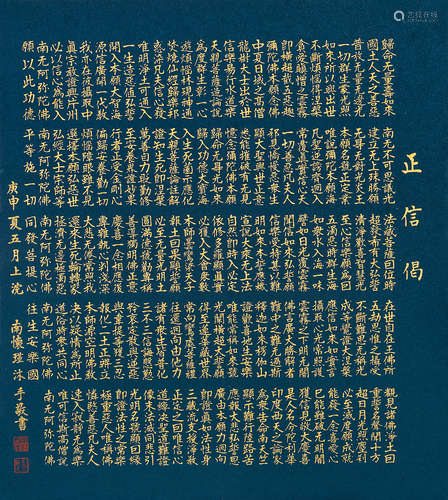 正信偈
歸命无量壽如來
南无不可思議光
法藏菩薩因位時
在世自在王佛所
覩見諸佛淨土因
國土人天之善惡
建立无上殊勝願
超發希有大弘誓
五劫思惟之攝受
重誓名聲聞十方
普放无量无邊光
无礙无對光炎王
清淨歡喜智慧光
不斷難思无稱光
超日月光照塵刹
一切群生蒙光照
本願名號正定業
至心信樂願為因
成等覺證大涅槃
必至滅度願成就
如來所以興出世
唯說彌陀本願海
五濁惡時群生海
應信如來如實言
能發一念喜愛心
不斷煩惱得涅槃
凡聖逆謗齊迴入
如眾水入海一味
攝取心光常照護
已能雖破无明闇
貪愛瞋憎之雲霧
常覆真實信心天
譬如日光覆雲霧
雲霧之下明无闇
獲信見敬大慶喜
即橫超截五惡趣
一切善惡凡夫人
聞信如來弘誓願
佛言廣大勝解者
是人名分陀利華
彌陀佛本願念佛
邪見憍慢惡眾生
信樂受持甚以難
難中之難无過斯
印度西天之論家
中夏日域之高僧
顯大聖興世正意
明如來本誓應機
釋迦如來楞伽山
為眾告命南天竺
龍樹大士出於世
悉能摧破有无見
宣說大乘无上法
證歡喜地生安樂
顯示難行陸路苦
信樂易行水道樂
憶念彌陀佛本願
自然即時入必定
唯能常稱如來號
應報大悲弘誓恩
天親菩薩造論說
歸命无礙光如來
依修多羅顯真實
光闡橫超大誓願
廣由本願力迴向
為度群生彰一心
歸入功德大寶海
必獲入大會眾數
得至蓮華藏世界
即證真如法性身
遊煩惱林現神通
入生死園示應化
本師曇鸞梁天子
常向鸞處菩薩禮
三藏流支授淨教
焚燒仙經歸樂邦
天親菩薩論註解
報土因果顯誓願
往還迴向由他力
正定之因唯信心
惑染凡夫信心發
證知生死即涅槃
必至无量光明土
諸有眾生皆普化
道綽決聖道難證
唯明淨土可通入
萬善自力貶勤修
圓滿德號勸專稱
三不三信誨慇懃
像末法滅同悲引
一生造惡值弘誓
至安養界證妙果
善導獨明佛正意
矜哀定散與逆惡
光明名號顯因緣
開入本願大智海
行者正受金剛心
慶喜一念相應後
與韋提等獲三忍
即證法性之常樂
源信廣開一代教
偏歸安養勸一切
專雜執心判淺深
報化二土正辨立
極重惡人唯稱佛
我亦在彼攝取中
煩惱障眼雖不見
大悲无倦常照我
本師源空明佛教
憐愍善惡凡夫人
真宗教證興片州
選擇本願弘惡世
還來生死輪轉家
決以疑情為所止
速入寂靜无為樂
必以信心為能入
弘經大士宗師等
拯濟无邊極濁惡
道俗時眾共同心
唯可信斯高僧說
南无阿彌陀佛
南无阿彌陀佛
南无阿彌陀佛
南无阿彌陀佛
南无阿彌陀佛
願以此功德
平等施一切
同發菩提心
往生安樂國
庚申夏五月上浣
南懷瑾沐手敬書